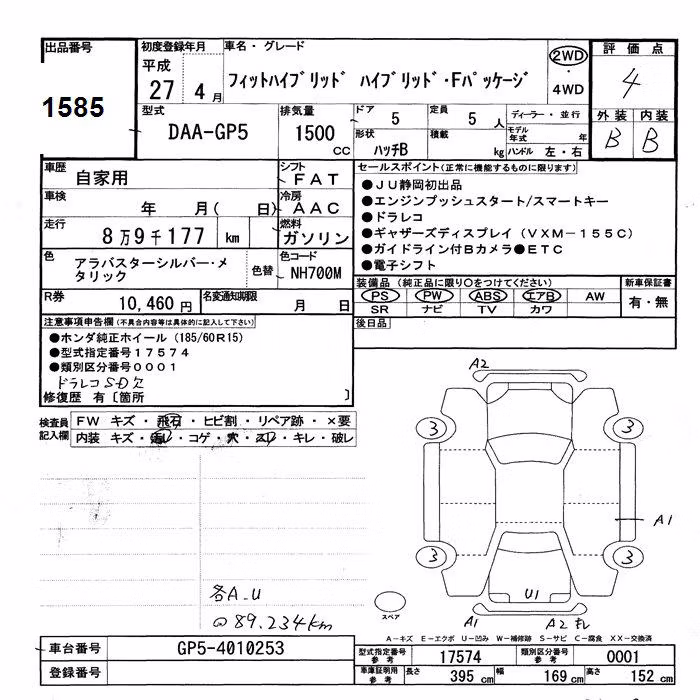 出品番号
1585
初度登録年月
平成
27 4 月
車名・グレード
フィットハイブリッド ハイブリッド・Fパッケージ
2WD
・
4WD
評価点
4
外装 内装
B B
型式
DAA-GP5
排気量
1500
CC
ドア 5
定員 5 人
形状 ハッチB
積載 kg
ディーラー・並行
モデル年式 年
ハンドル 左・右
車歴
自家用
シフト
FAT
車検
年 月( 日)
冷房
AAC
走行
8万9千177 km
燃料
ガソリン
色
アラバスターシルバー・メタリック
色替
色コード
NH700M
R券
10,460 円
名変通知期限
月 日
セールスポイント(正常に機能するものに限ります)
●JU静岡初出品
●エンジンプッシュスタート/スマートキー
●ドラレコ
●ギャザーズディスプレイ(VXM-155C)
●ガイドライン付Bカメラ●ETC
●電子シフト
装備品(純正品に限り○をつけてください)
新車保証書
PS PW ABS エアB AW
有・無
SR ナビ TV カワ
後日品
注意事項申告欄(不具合内容等は具体的に記入して下さい)
●ホンダ純正ホイール(185/60R15)
●型式指定番号17574
●類別区分番号0001
ドラレコSD欠
修復歴 有〔箇所 〕
検査員記入欄
FW キズ・飛石・ヒビ割・リペア跡・×要
内装 キズ・汚レ・コゲ・穴・スレ・キレ・破レ
A2
3 3
A1
3 3
U1
スペア
A1 A2
各A.U
@89.234km
A-キズ E-エクボ U-凹み W-補修跡 S-サビ C-腐食 XX-交換済
車台番号
GP5-4010253
登録番号
型式指定番号 参考 17574
類別区分番号 参考 0001
車庫証明用 参考
長さ 395 cm 幅 169 cm 高さ 152 cm